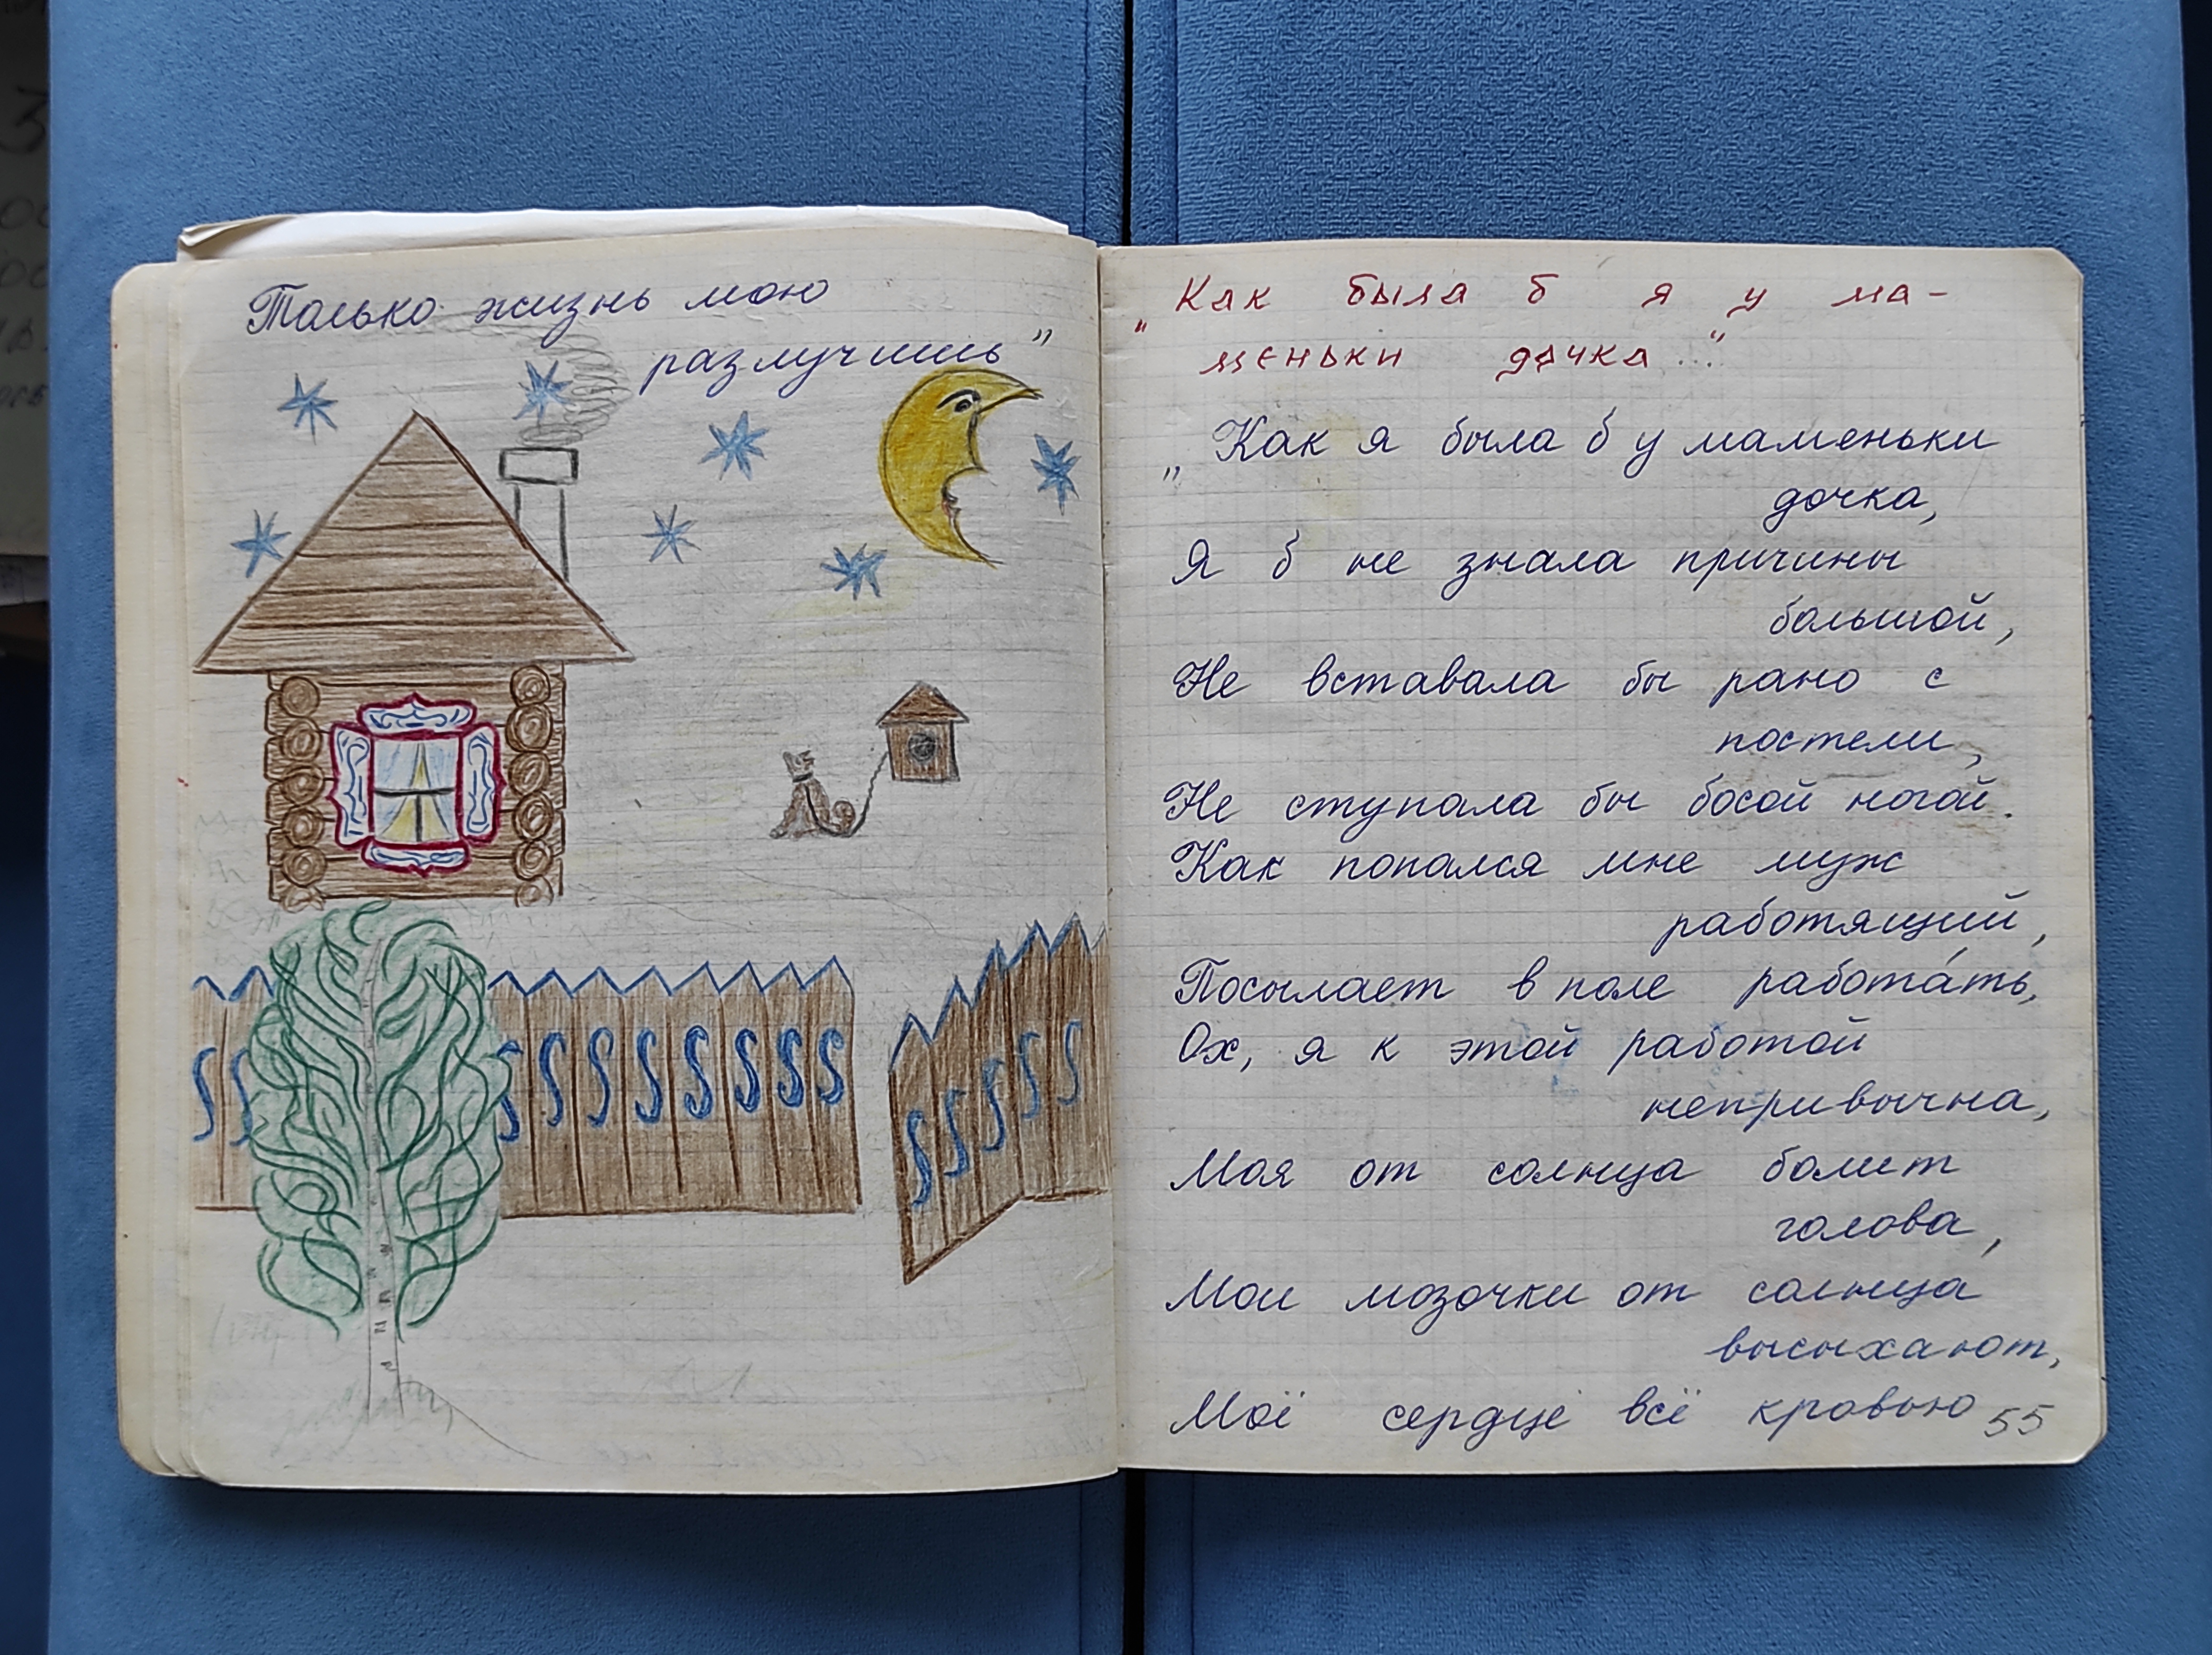 Только жизнь мою
разлучишь"
"Как была б я у ма-
меньки дочка..."
"Как я была б у маменьки
дочка,
Я б не знала причины
большой,
Не вставала бы рано с
постели,
Не ступала бы босой ногой.
Как попался мне муж
работящий,
Посылает в поле рабо́тать,
Ох, я к этой работой
непривычна,
Моя от солнца болит
голова,
Мои мозочки от солнца
высыхают,
Моё сердце всё кровью
55